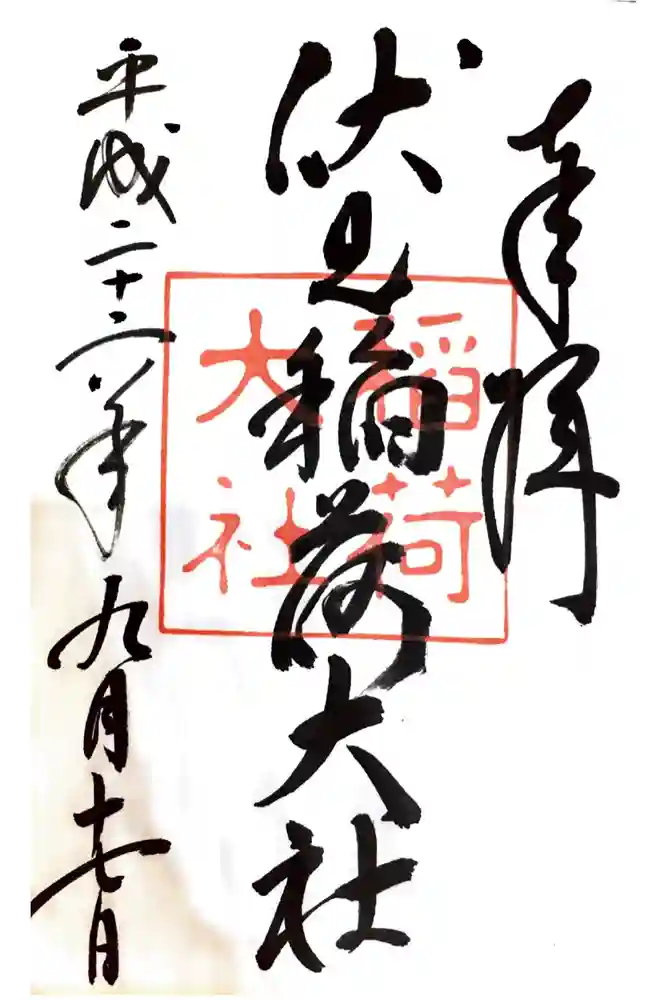 奉拝
伏見稲荷大社
稲荷
大社
平成二十二年九月十七日